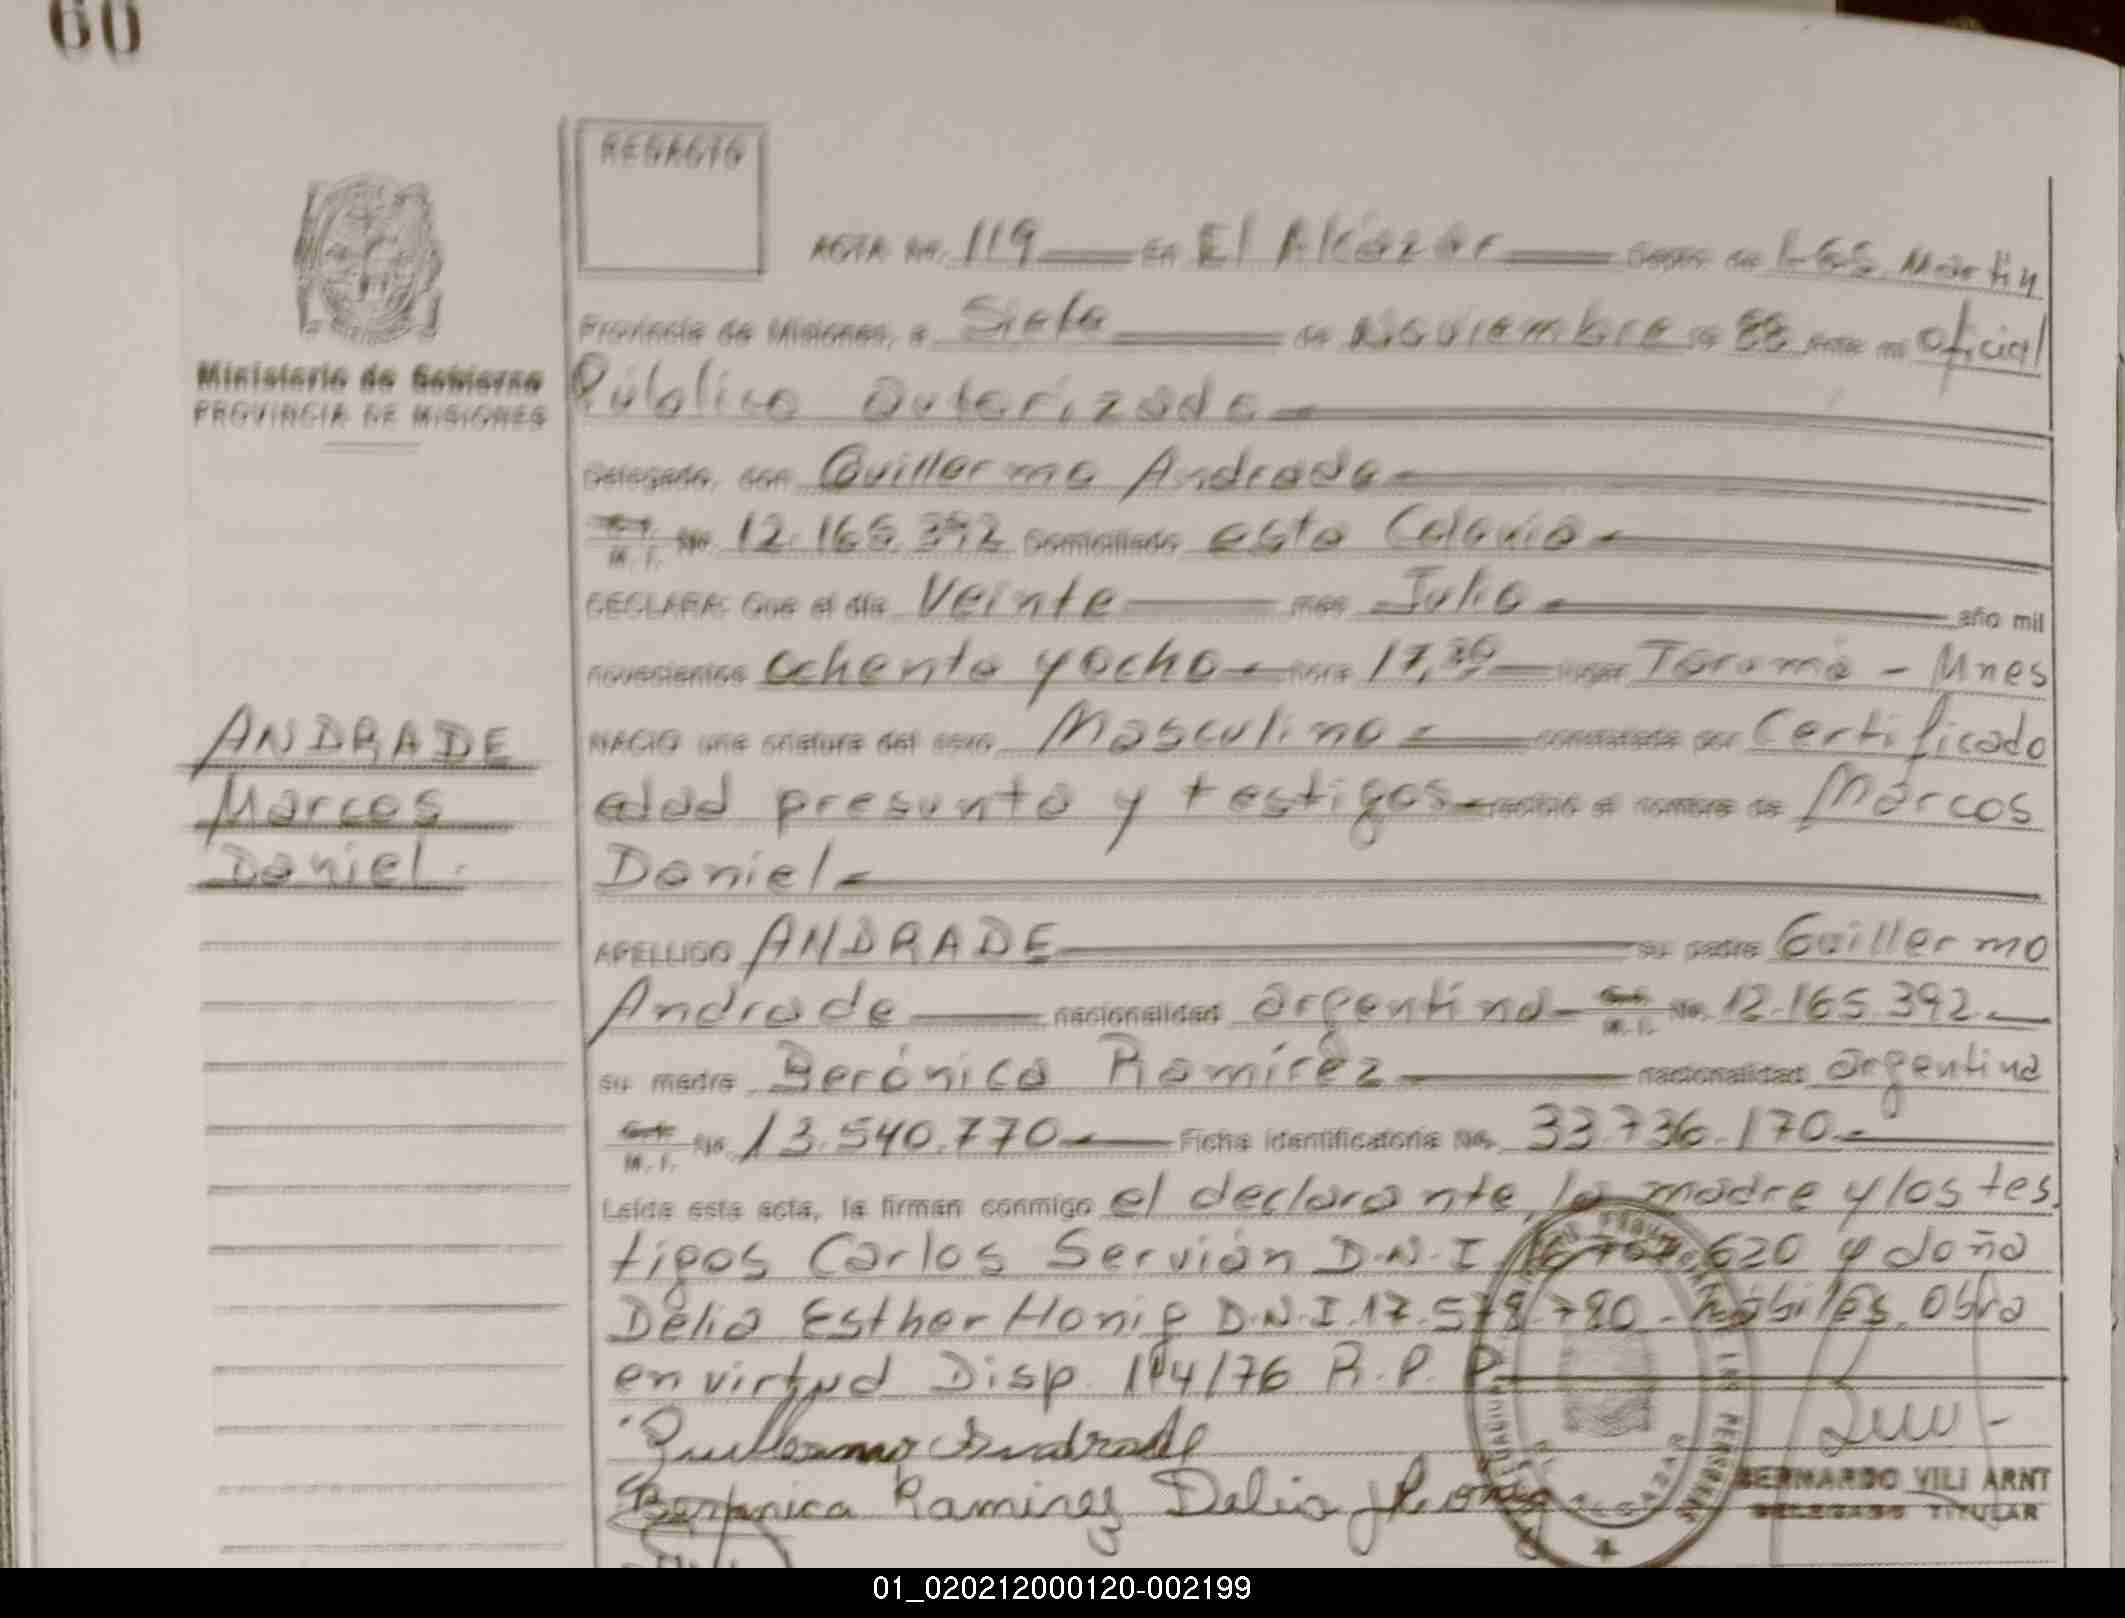 60
RESACTO
ACTA No. 119 en El Alcázar Depto de LGS. Martín
Provincia de Misiones, a Siete de Noviembre de 88 ante mi oficial
Ministerio de Gobierno
Público autorizado
PROVINCIA DE MISIONES
Delegado, don Guillermo Andrade
M. I. No. 12.165.392 Domiciliado esta Colonia
DECLARA: Que el día Veinte mes Julio año mil
novecientos ochenta y ocho hora 17,30 lugar Tarumá - Mnes
ANDRADE
NACIO una criatura del sexo Masculino constatada por Certificado
Marcos
edad presunta y testigos recibió el nombre de Marcos
Daniel.
Daniel
APELLIDO ANDRADE su padre Guillermo
Andrade nacionalidad argentina M. I. No. 12.165.392
su madre Berónica Ramírez nacionalidad argentina
M. I. No. 13.540.770 Ficha identificatoria No. 33.736.170
Leída esta acta, la firman conmigo el declarante, la madre y los tes
tigos Carlos Servián D.N.I. 620 y doña
Delia Esther Honig D.N.I. 17.578.780 - hábiles. Obra
en virtud Disp. 114/76 R.P.P.
Guillermo Andrade
Beronica Ramirez Delia Honig
BERNARDO VILI ARNT
DELEGADO TITULAR
01_020212000120-002199